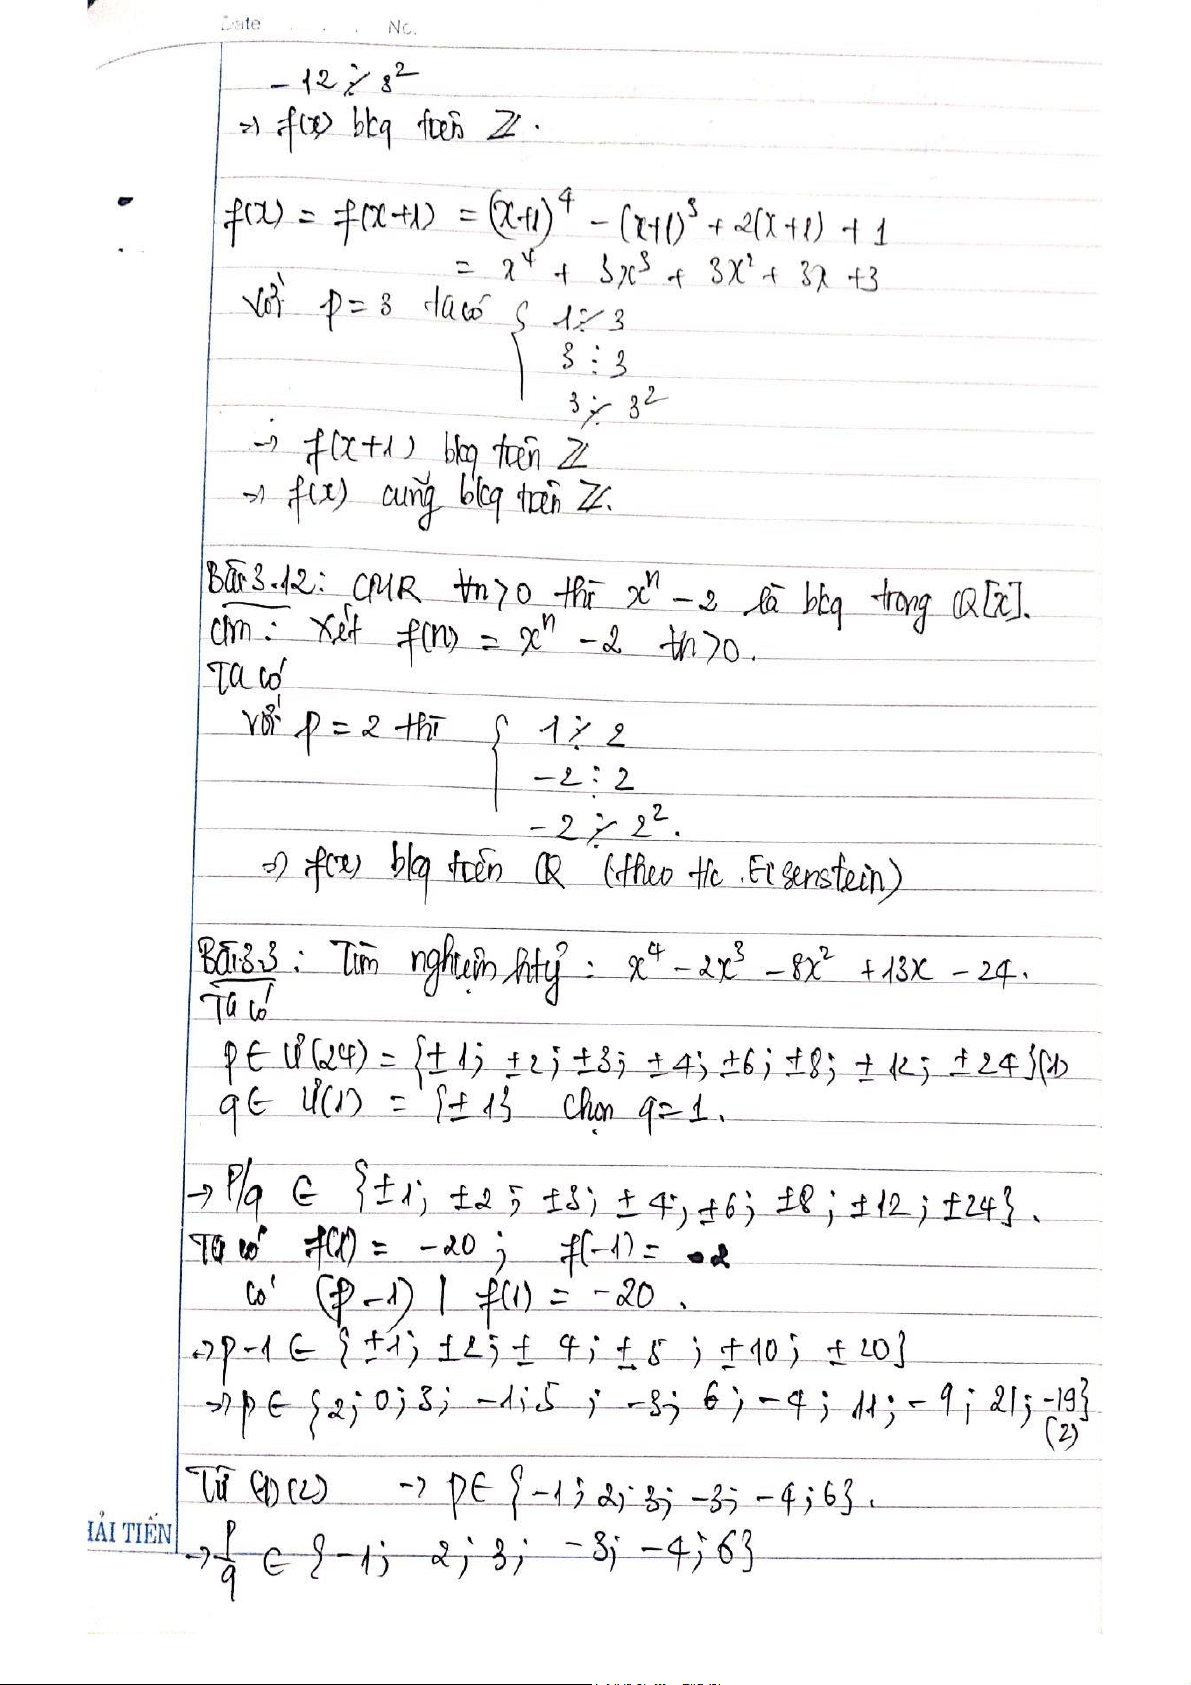 Date No.
- 12 ⋮̸ 3²
=> f(x) bkq trên ℤ.
f(x) = f(x+1) = (x+1)⁴ - (x+1)³ + 2(x+1) + 1
= x⁴ + 3x³ + 3x² + 3x + 3
với p = 3 ta có { 1 ⋮̸ 3
3 ⋮ 3
3 ⋮̸ 3²
-> f(x+1) bkq trên ℤ
=> f(x) cũng bkq trên ℤ.
Bài 3.12: CMR ∀n>0 thì xⁿ - 2 là bkq trong Q[x].
Cm: Xét f(n) = xⁿ - 2 ∀n>0.
Ta có
với p = 2 thì { 1 ⋮̸ 2
-2 ⋮ 2
-2 ⋮̸ 2².
=> f(x) bkq trên Q (theo t/c Eisenstein)
Bài 3.3: Tìm nghiệm htỷ: x⁴ - 2x³ - 8x² + 13x - 24.
Ta có
p ∈ Ư(24) = {±1; ±2; ±3; ±4; ±6; ±8; ±12; ±24} (1)
q ∈ Ư(1) = {±1} chọn q = 1.
-> p/q ∈ {±1; ±2; ±3; ±4; ±6; ±8; ±12; ±24}.
Ta có f(1) = -20; f(-1) = -2
có (p-1) | f(1) = -20.
-> p-1 ∈ {±1; ±2; ± 4; ±5; ±10; ±20}
=> p ∈ {2; 0; 3; -1; 5; -3; 6; -4; 11; -9; 21; -19}
(2)
Từ (1)(2) -> p ∈ {-1; 2; 3; -3; -4; 6}.
-> p/q ∈ {-1; 2; 3; -3; -4; 6}
HẢI TIẾN